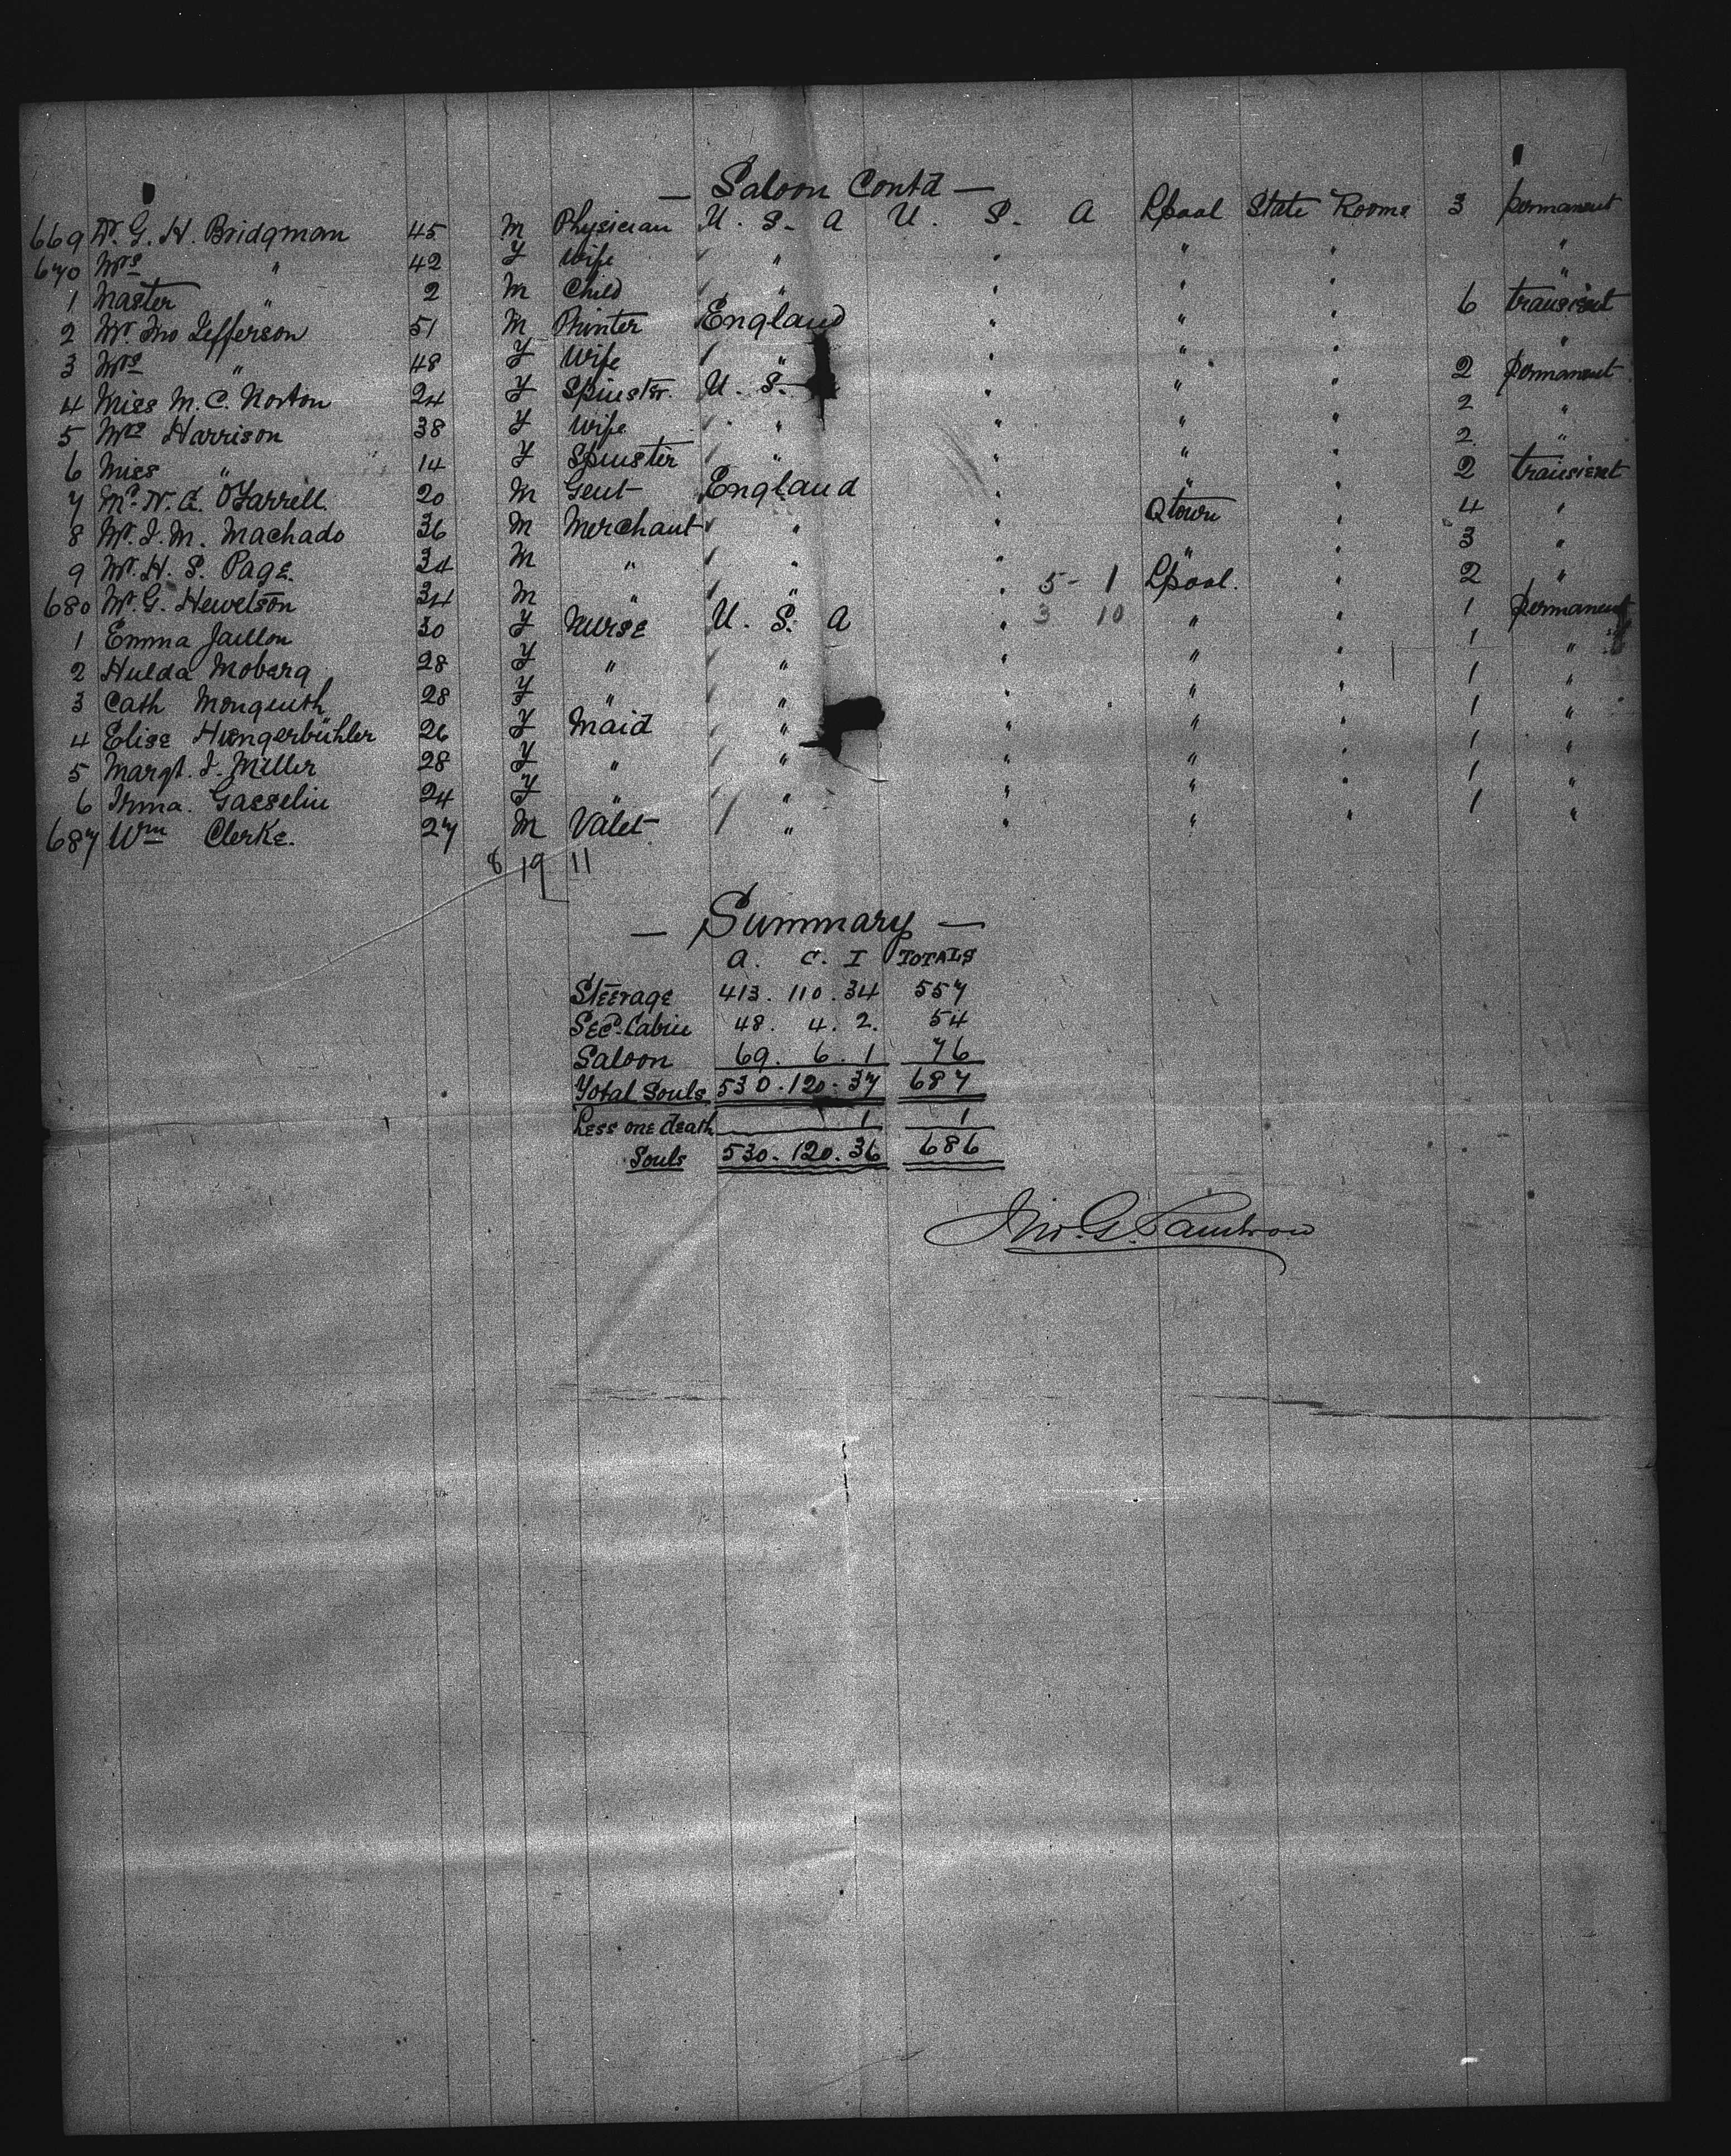 — Saloon Contd —
669 Dr. G. H. Bridgman 45 M Physician U. S. A U. S. A Lpool State Rooms 3 permanent
670 Mrs " 42 F Wife " " " " "
1 Master " 2 M Child " " " " "
2 Mr. Jno Jefferson 51 M Printer England " " " 6 transient
3 Mrs " 48 F Wife " " " " "
4 Miss M. C. Norton 24 F Spinster. U. S. " " " 2 permanent
5 Mrs Harrison 38 F Wife " " " " 2 "
6 Miss " 14 F Spinster " " " " 2 "
7 Mr. W. A. O'Farrell 20 M Gent England " " " 2 transient
8 Mr. J. M. Machado 36 M Merchant " " Qtown " 4 "
9 Mr. H. S. Page. 34 M " " " " " 3 "
680 Mr. G. Hewetson 34 M " " " 5 - 1 Lpool. " 2 "
1 Emma Jaillon 30 F Nurse U. S. A " 3 10 " " 1 permanent
2 Hulda Moberg 28 F " " " " " 1 "
3 Cath Monqueth 28 F " " " " " 1 "
4 Elise Hungerbühler 26 F Maid " " " " 1 "
5 Margt. J. Miller 28 F " " " " " 1 "
6 Irma. Gasselin 24 F " " " " " 1 "
687 Wm Clerke. 27 M Valet " " " " 1 "
8 19 11
— Summary —
A. C. I TOTALS
Steerage 413. 110. 34 557
Sec. Cabin 48. 4. 2. 54
Saloon 69. 6. 1 76
Total Souls 530. 120. 37 687
Less one death 1 1
Souls 530. 120. 36 686
Jno. G.